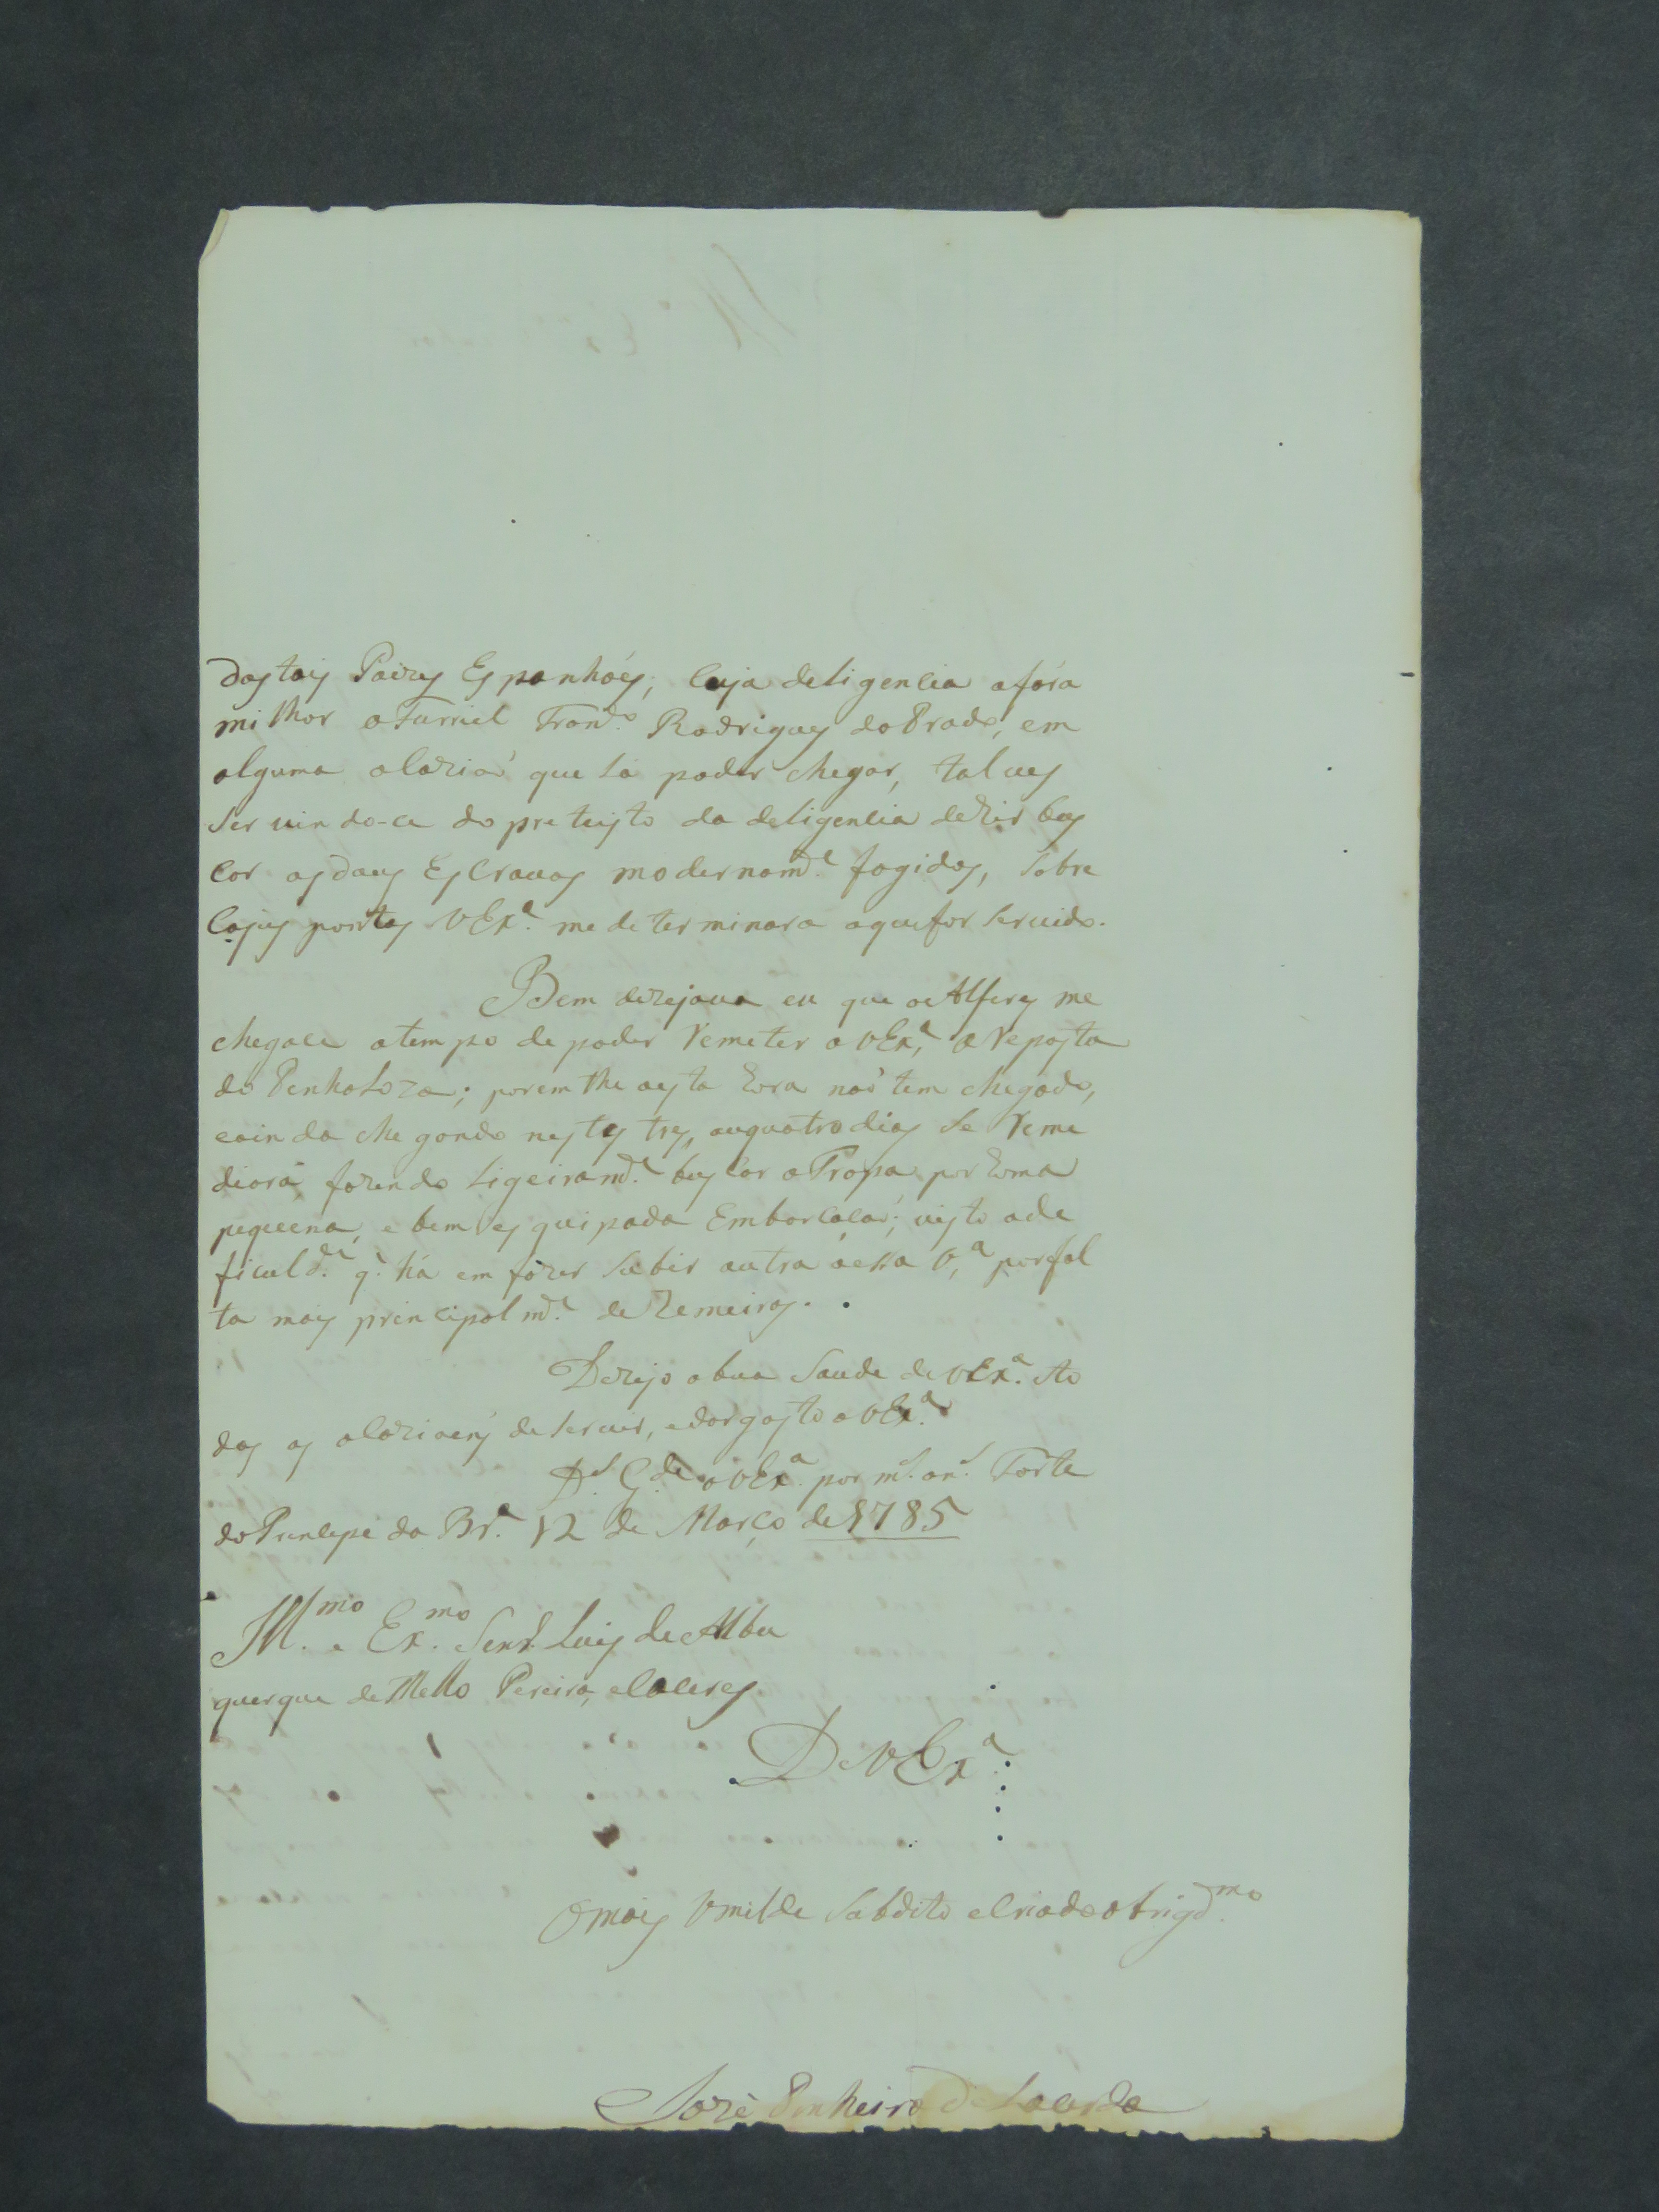 dos tais Padres Espanhóes; cuja deligencia afára
milhor o Furriel Fran.co Rodrigues do Prado, em
alguma ocaziaõ que la poder chegar, talves
servindo-ce do preteisto da deligencia de hir bus
car as duas Escravas modernam.te fogidas, sobre
cojos pontos VEx.a me determinara oque for servido.
Bem dezejava eu que o Alferes me
chegace atempo de poder remeter a VEx.a, a reposta
do Penhaloza; porem lhe aesta hora naõ tem chegado,
eainda chegando nestes tres, ouquatro dias se reme
diará, fazendo ligeiram.te buscar a Tropa por huma
piquena, e bem esquipada Embarcacaõ; visto ade
ficuld.e q̃. há em fazer subir outra áessa V.a, porfal
ta mais principalm.te de Remeiros.
Dezejo aboa Saude de VEx.a eto
das as ocazioens de servir, edar gosto a VEx.a
D.s G.de a VEx.a por m.s an.s Forte
do Princepe da Br.a 12 de Março de 1785
Ill.mo e Ex.mo Senr. Luis de Albu
querque de Mello Pereira, eCaceres
De VEx.a
O mais Omilde Subdito eCriado obrigd.mo
Jozè Pinheiro de Lacerda